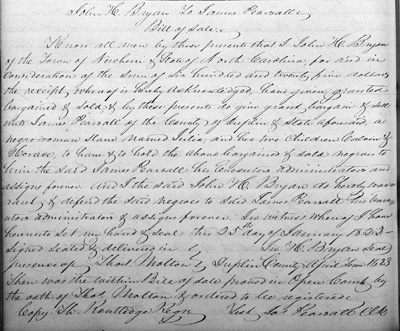 John H. Bryan To James Pearsall
Bill of Sale
Know all men by these presents that I John H. Bryan
of the Town of Newbern & State of North Carolina, for and in
consideration of the sum of six hundred and twenty five dollars
the receipt, whereof is hereby acknowledged, have given, granted
bargained & sold & by these presents do give grant, bargain & sell
unto James Pearsall of the County of Duplin & State aforesaid, a
negro woman Slave named Julia, and her two Children &
Horace, to have & to hold the above bargained & sold negroes to
him the said James Pearsall his Executors administrators and
assigns forever. And I the said John H. Bryan do hereby warr
rant & defend the said negroes to said James Pearsall his Execu
tors administrators & assigns forever. In witness whereof I have
hereunto set my hand & seal this 25th day of January 1823
signed sealed & delivered in Jno H. Bryan seal
presence of Thos Molton Duplin County April Term 1823
Then was the within Bill of sale proved in Open Court by
the oath of Thos Molton & ordered to be registered
Copy Th. Routledge Regr Test Jas Pearsall Clk